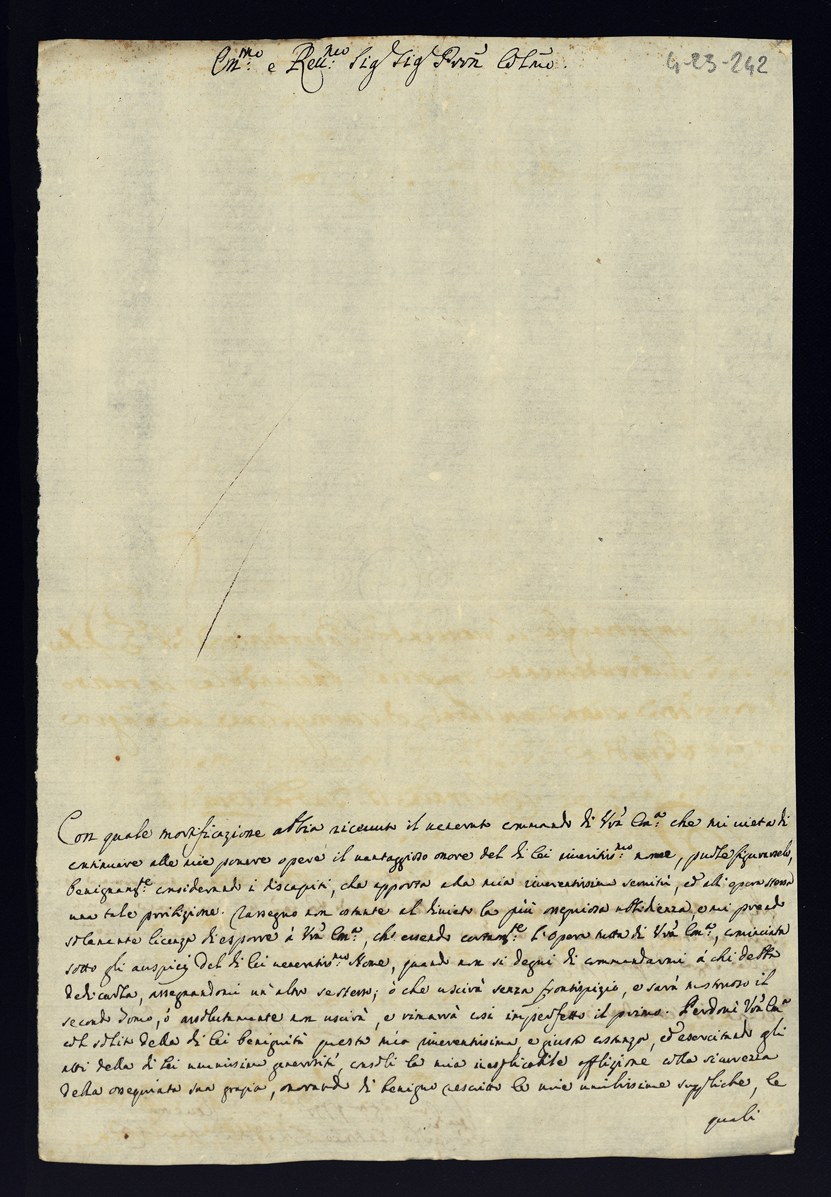 Em.mo e Reu.mo Sig.r Sig.r Pron Colmo.
4-23-242
Con qual mortificazione abbia riceuuto il uenerato commando di Vra Em.a che mi uieta di
continuare alle mie pouere opere il uantaggioso onore del di lei riueritis.mo nome, puole figurarselo,
benignam.te considerando i discapiti, che apporta alla mia riuerentissima seruitù, ed all'opera stessa
una tale proibizione. Rassegno non ostante al diuieto la più ossequiosa ubbidienza, e mi prendo
solamente licenza di esporre à Vra Em.a, che essendo certam.te l'Opera tutta di Vra Em.a, cominciata
sotto gli auspicij del di lei ueneratis.mo Nome, quando non si degni di commandarmi à chi debba
dedicarla, assegnandomi un'altro se stesso; ò che uscirà senza frontispizio, e sarà mostruoso il
secondo Tomo, ò assolutamente non uscirà, e rimarrà così imperfetto il primo. Perdoni Vra Em.a
col solito della di lei benignità questa mia riuerentissima e giusta istanza, ed esercitando gli
atti della di lei umanissima generosità, consoli la mia inesplicabile afflizione colla sicurezza
della ossequiata sua grazia, onorando di benigno rescritto le mie umilissime suppliche, le
quali